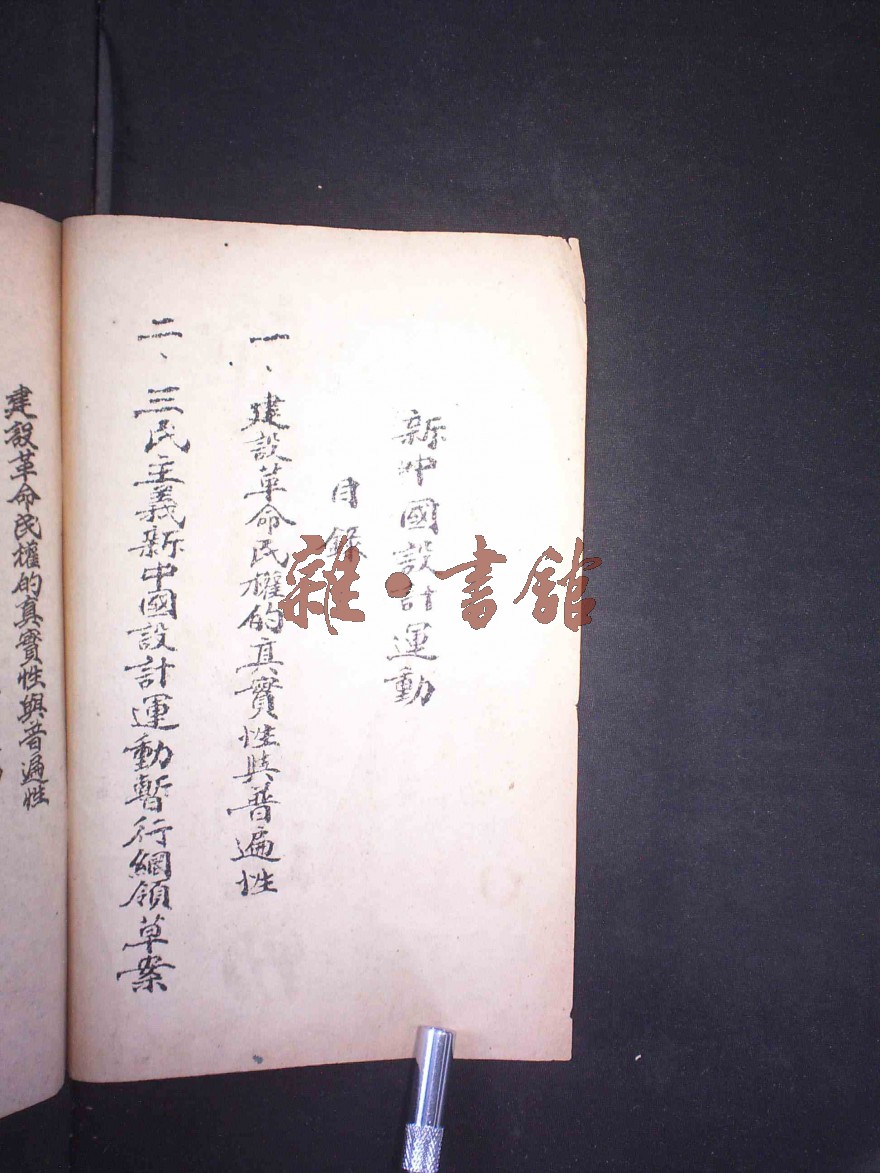 新中國設計運動
目錄
一、建設革命民權的真實性與普遍性
二、三民主義新中國設計運動暫行綱領草案
建設革命民權的真實性與普遍性
雜·書館